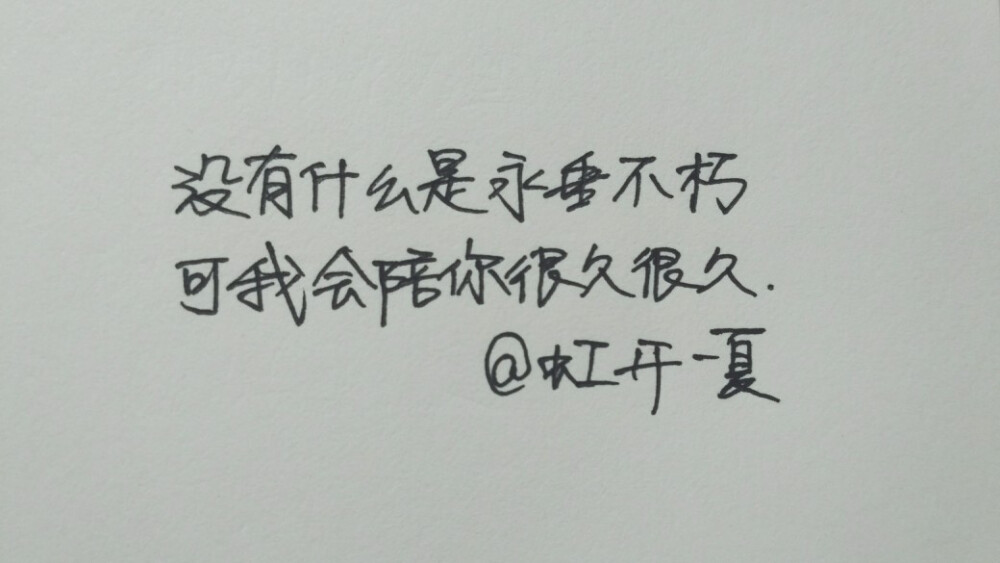 没有什么是永垂不朽
可我会陪你很久很久.
@虹开一夏